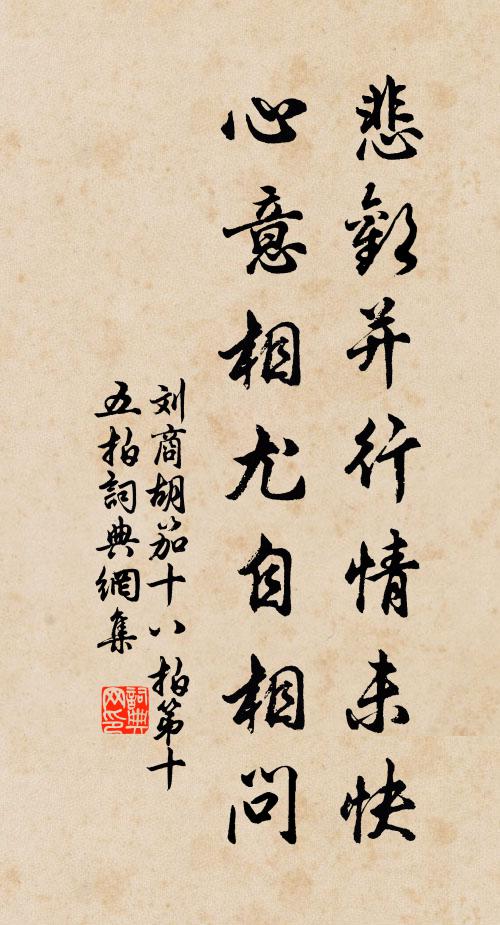 悲歡并行情未快
心意相尤自相問
刘商胡笳十八拍第十
五拍詞典網集
詞典
网印